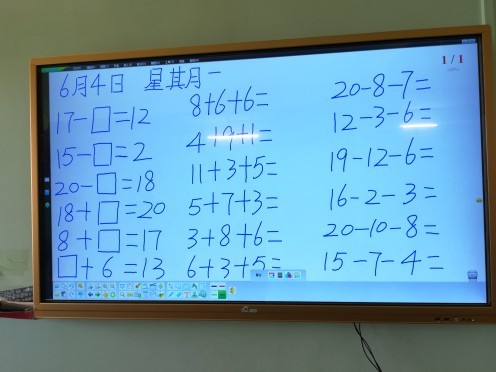 1/1
6月4日 星期一
17-□=12
15-□=2
20-□=18
18+□=20
8+□=17
□+6=13
8+6+6=
11+3+5=
5+7+3=
3+8+6=
6+3+5=
20-8-7=
12-3-6=
19-12-6=
16-2-3=
20-10-8=
15-7-4=